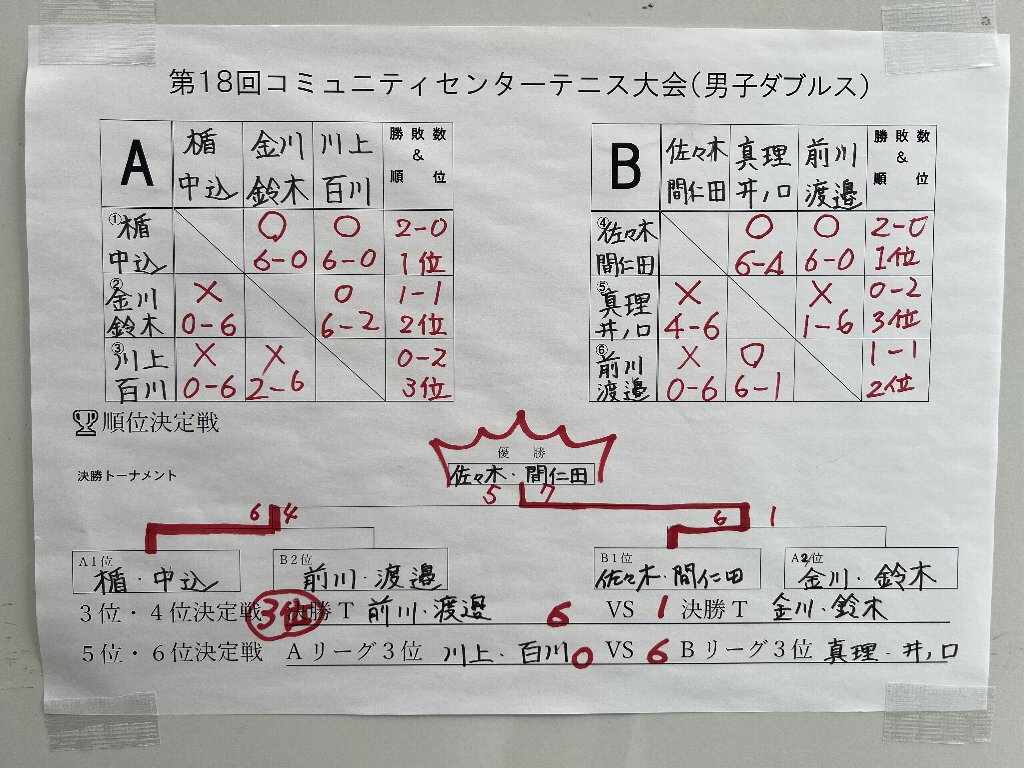 第18回コミュニティセンターテニス大会(男子ダブルス)
A 楯 中込 金川 鈴木 川上 百川 勝敗数 & 順位
① 楯 中込 ○ 6-0 ○ 6-0 2-0 1位
② 金川 鈴木 × 0-6 ○ 6-2 1-1 2位
③ 川上 百川 × 0-6 × 2-6 0-2 3位
B 佐々木 間仁田 真理 井ノ口 前川 渡邉 勝敗数 & 順位
④ 佐々木 間仁田 ○ 6-4 ○ 6-0 2-0 1位
⑤ 真理 井ノ口 × 4-6 × 1-6 0-2 3位
⑥ 前川 渡邉 × 0-6 ○ 6-1 1-1 2位
順位決定戦
決勝トーナメント
優勝
佐々木・間仁田
5 7
6 4 6 1
A1位 楯・中込
B2位 前川・渡邉
B1位 佐々木・間仁田
A2位 金川・鈴木
3位・4位決定戦 3位 決勝T 前川・渡邉 6 VS 1 決勝T 金川・鈴木
5位・6位決定戦 Aリーグ3位 川上・百川 0 VS 6 Bリーグ3位 真理・井ノ口